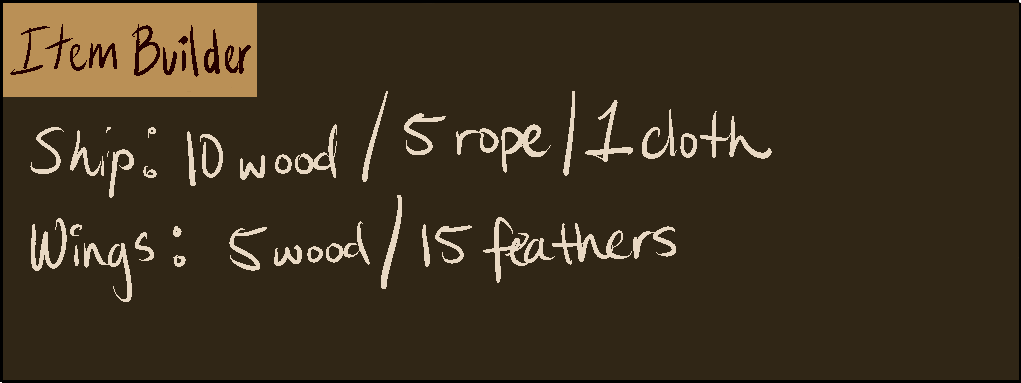 Item Builder
Ship: 10 wood / 5 rope / 1 cloth
Wings: 5 wood / 15 feathers